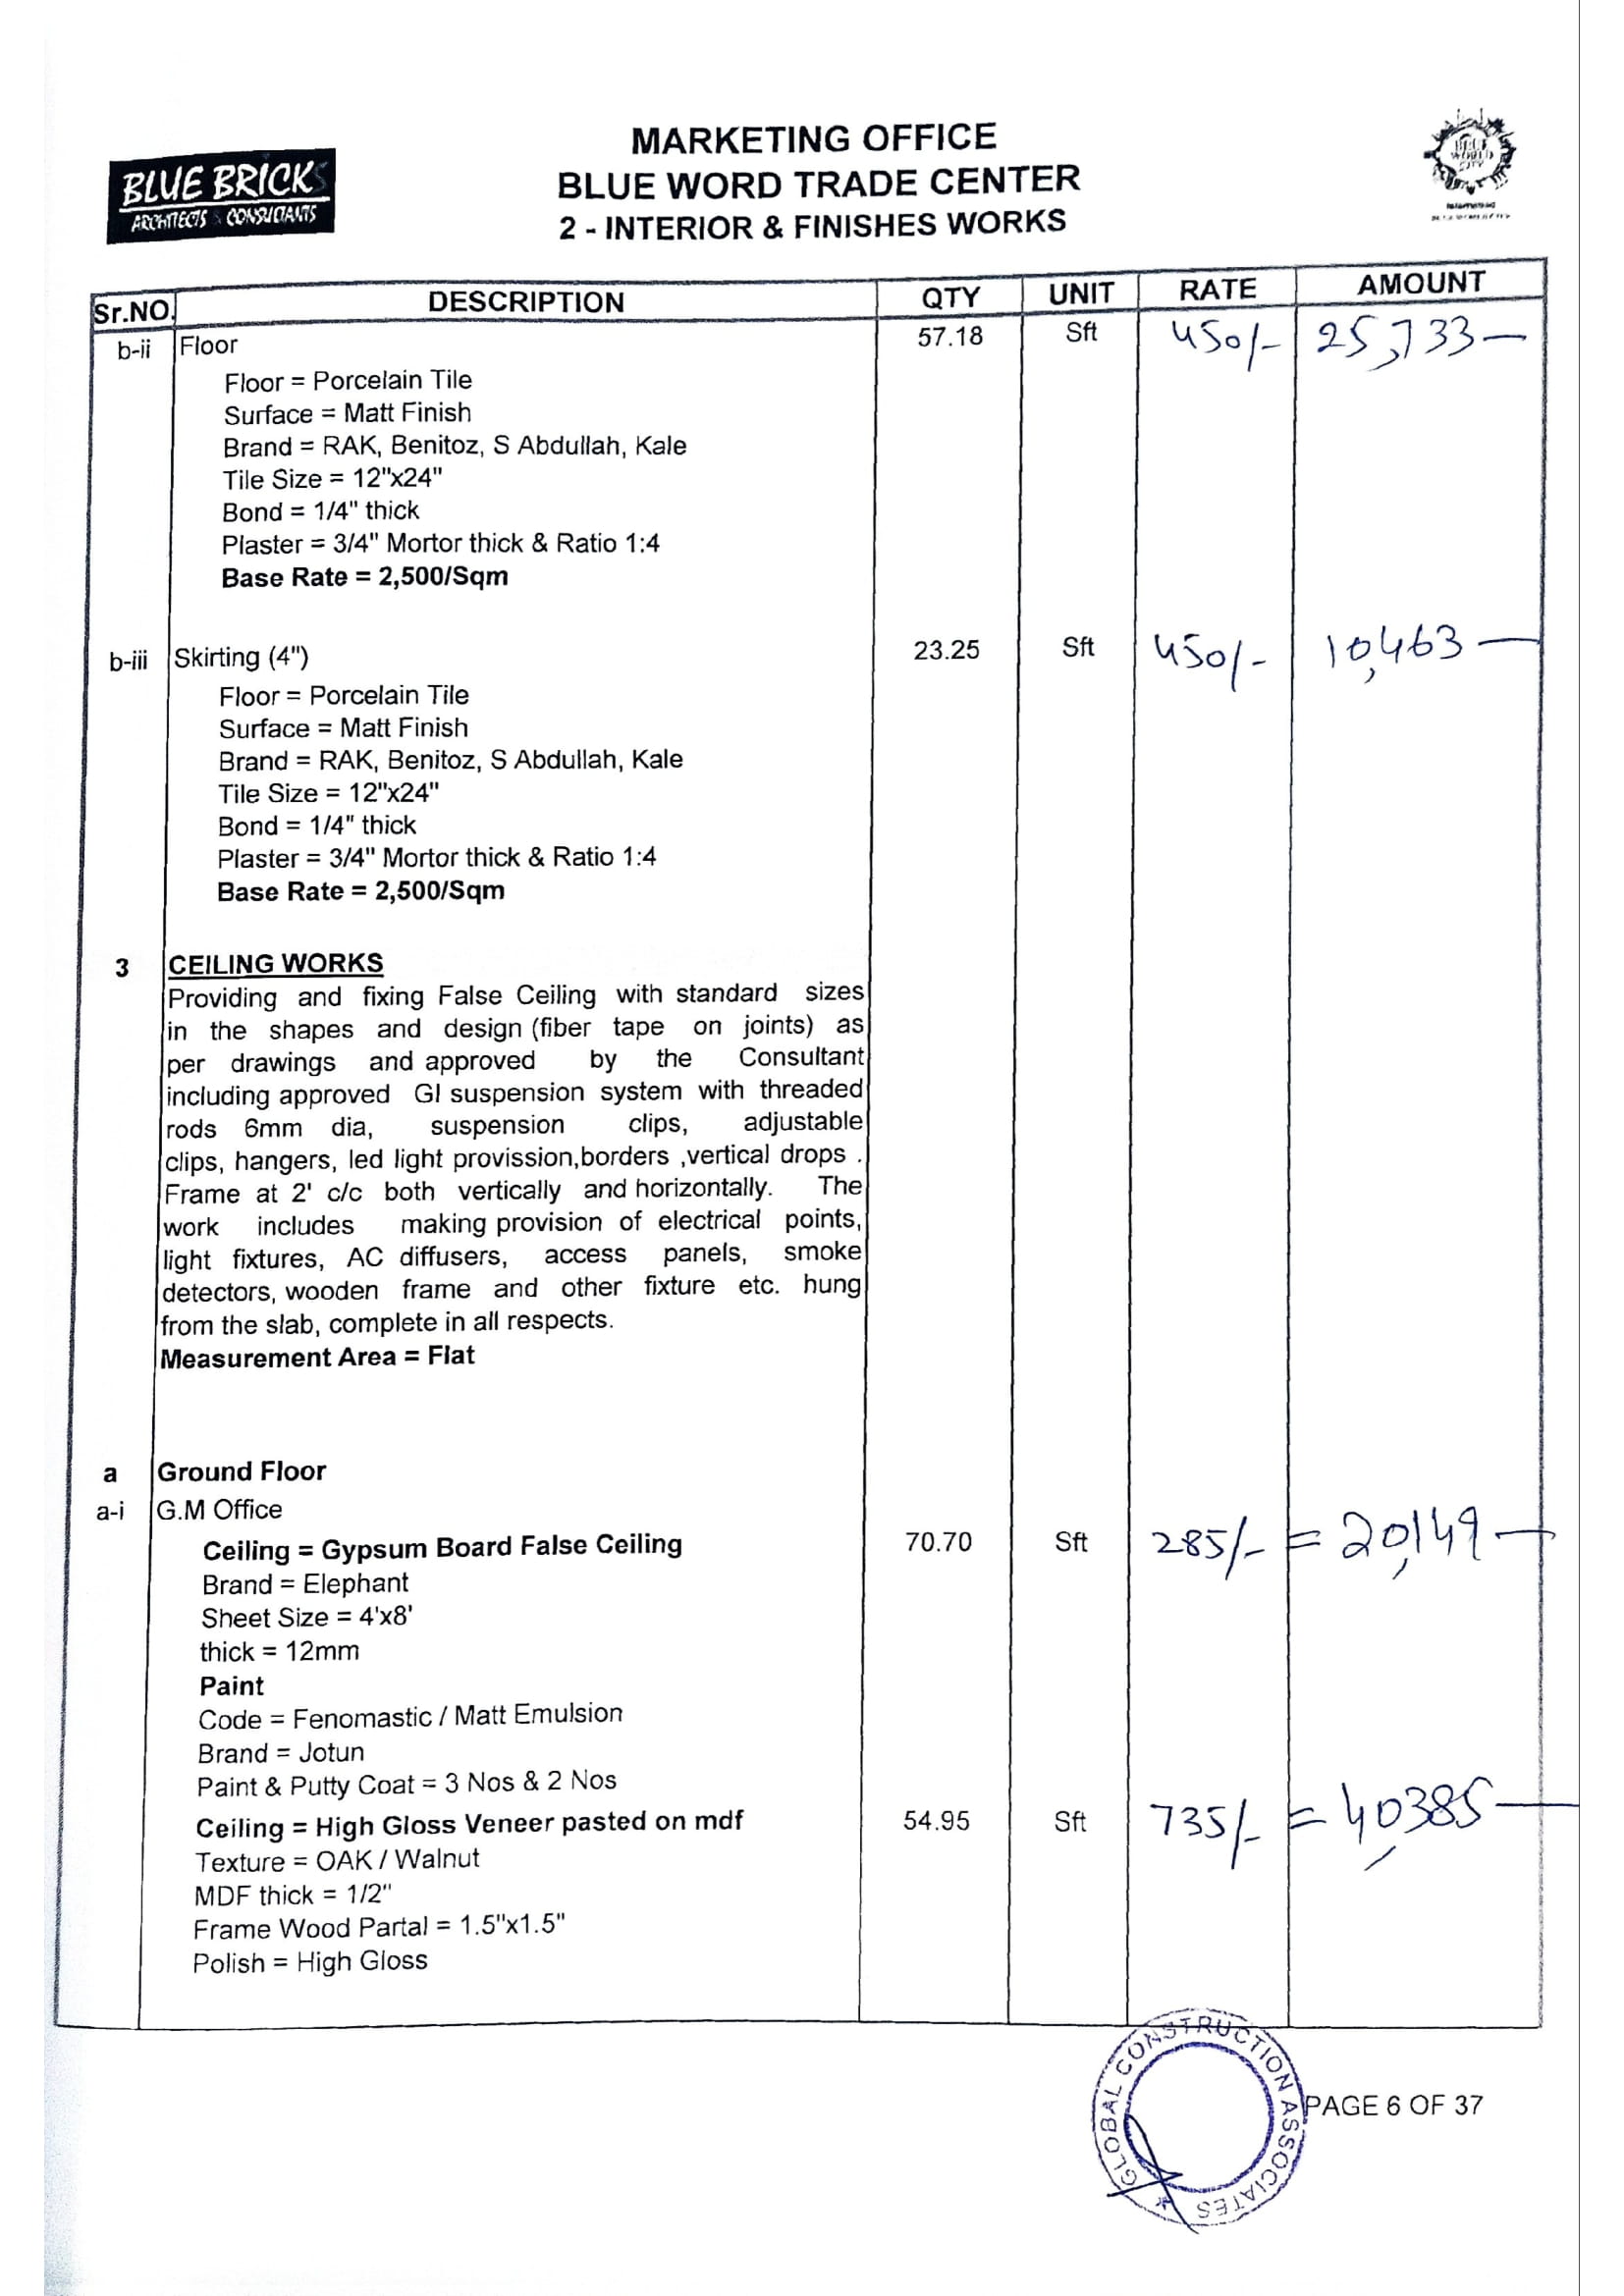 BLUE BRICKS
ARCHITECTS & CONSULTANTS
MARKETING OFFICE
BLUE WORD TRADE CENTER
2 - INTERIOR & FINISHES WORKS
BLUE
WORLD
CITY
Sr.NO. DESCRIPTION QTY UNIT RATE AMOUNT
b-ii Floor 57.18 Sft 450/- 25,733 —
Floor = Porcelain Tile
Surface = Matt Finish
Brand = RAK, Benitoz, S Abdullah, Kale
Tile Size = 12"x24"
Bond = 1/4" thick
Plaster = 3/4" Mortor thick & Ratio 1:4
Base Rate = 2,500/Sqm
b-iii Skirting (4") 23.25 Sft 450/- 10,463 —
Floor = Porcelain Tile
Surface = Matt Finish
Brand = RAK, Benitoz, S Abdullah, Kale
Tile Size = 12"x24"
Bond = 1/4" thick
Plaster = 3/4" Mortor thick & Ratio 1:4
Base Rate = 2,500/Sqm
3 CEILING WORKS
Providing and fixing False Ceiling with standard sizes
in the shapes and design (fiber tape on joints) as
per drawings and approved by the Consultant
including approved GI suspension system with threaded
rods 6mm dia, suspension clips, adjustable
clips, hangers, led light provission,borders ,vertical drops .
Frame at 2' c/c both vertically and horizontally. The
work includes making provision of electrical points,
light fixtures, AC diffusers, access panels, smoke
detectors, wooden frame and other fixture etc. hung
from the slab, complete in all respects.
Measurement Area = Flat
a Ground Floor
a-i G.M Office
Ceiling = Gypsum Board False Ceiling 70.70 Sft 285/- = 20,149 —
Brand = Elephant
Sheet Size = 4'x8'
thick = 12mm
Paint
Code = Fenomastic / Matt Emulsion
Brand = Jotun
Paint & Putty Coat = 3 Nos & 2 Nos
Ceiling = High Gloss Veneer pasted on mdf 54.95 Sft 735/- = 40,385 —
Texture = OAK / Walnut
MDF thick = 1/2"
Frame Wood Partal = 1.5"x1.5"
Polish = High Gloss
GLOBAL CONSTRUCTION ASSOCIATES
PAGE 6 OF 37